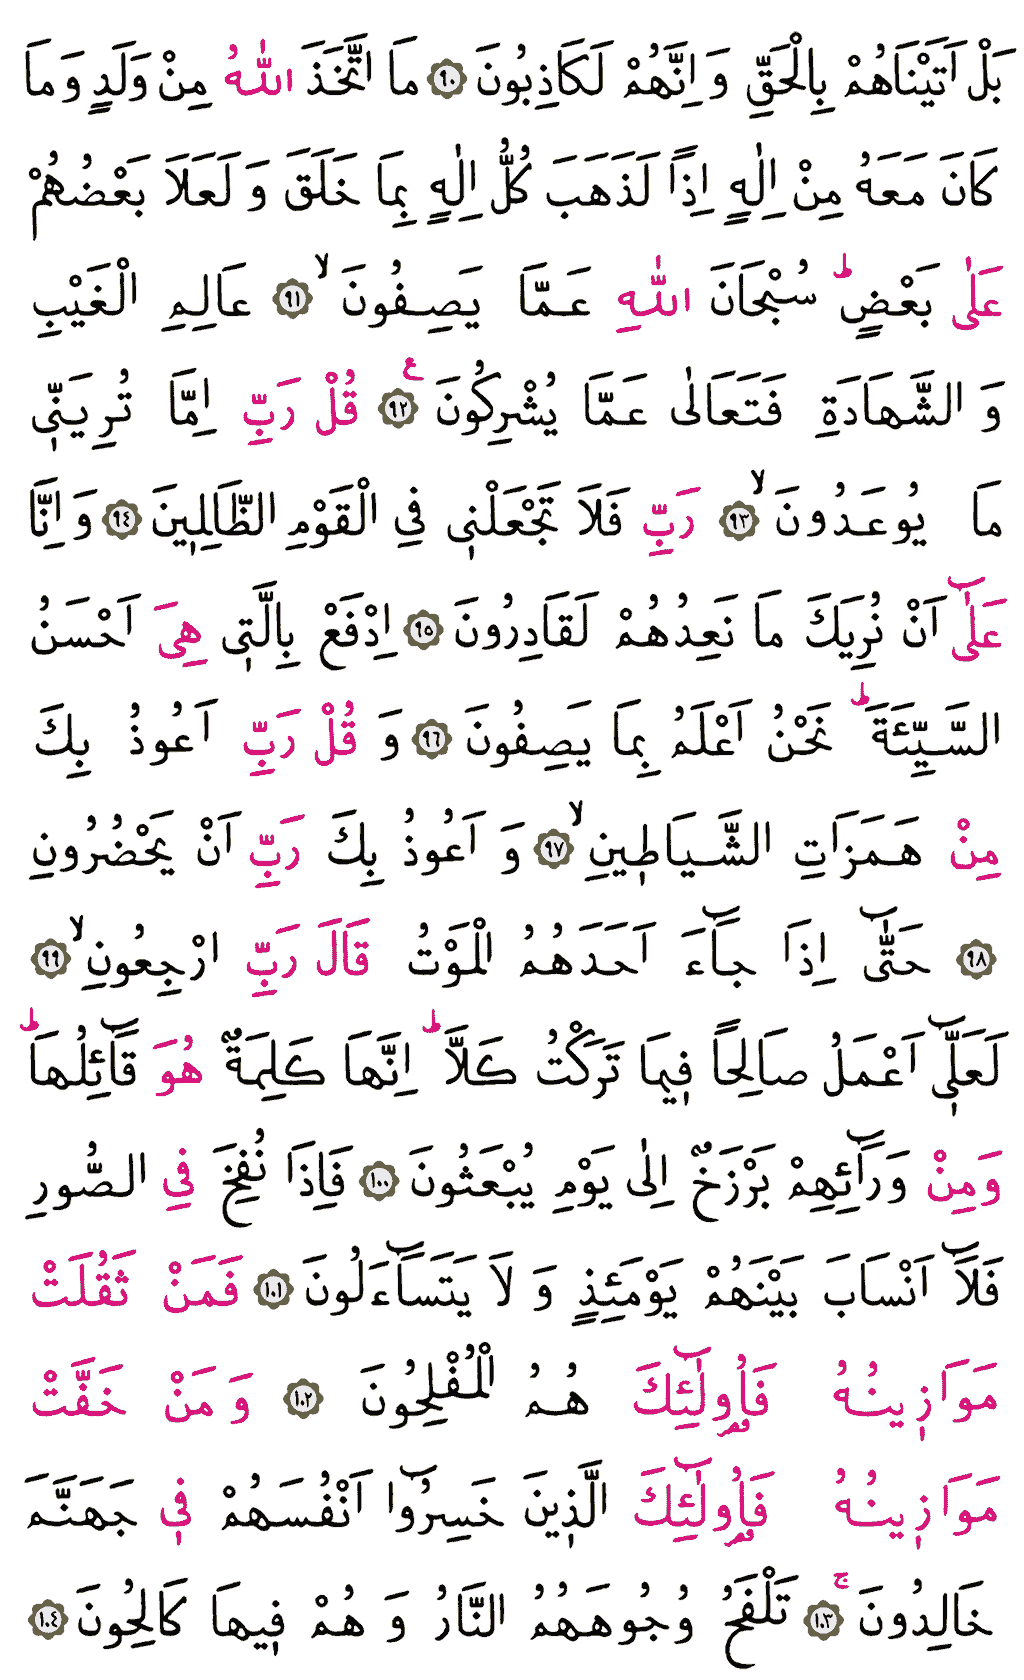 بَلْ اَتَيْنَاهُمْ بِالْحَقِّ وَ اِنَّهُمْ لَكَاذِبُونَ ﴿٩٠﴾ مَا اتَّخَذَ اللّٰهُ مِنْ وَلَدٍ وَ مَا
كَانَ مَعَهُ مِنْ اِلٰهٍ اِذًا لَذَهَبَ كُلُّ اِلٰهٍ بِمَا خَلَقَ وَ لَعَلَا بَعْضُهُمْ
عَلٰى بَعْضٍۜ سُبْحَانَ اللّٰهِ عَمَّا يَصِفُونَۙ ﴿٩١﴾ عَالِمِ الْغَيْبِ
وَ الشَّهَادَةِ فَتَعَالٰى عَمَّا يُشْرِكُونَ ﴿٩٢﴾ع قُلْ رَبِّ اِمَّا تُرِيَنّٖى
مَا يُوعَدُونَۙ ﴿٩٣﴾ رَبِّ فَلَا تَجْعَلْنٖى فِى الْقَوْمِ الظَّالِمٖينَ ﴿٩٤﴾ وَ اِنَّا
عَلٰٓى اَنْ نُرِيَكَ مَا نَعِدُهُمْ لَقَادِرُونَ ﴿٩٥﴾ اِدْفَعْ بِالَّتٖى هِىَ اَحْسَنُ
السَّيِّئَةَۜ نَحْنُ اَعْلَمُ بِمَا يَصِفُونَ ﴿٩٦﴾ وَ قُلْ رَبِّ اَعُوذُ بِكَ
مِنْ هَمَزَاتِ الشَّيَاطٖينِۙ ﴿٩٧﴾ وَ اَعُوذُ بِكَ رَبِّ اَنْ يَحْضُرُونِ
﴿٩٨﴾ حَتّٰٓى اِذَا جَٓاءَ اَحَدَهُمُ الْمَوْتُ قَالَ رَبِّ ارْجِعُونِۙ ﴿٩٩﴾
لَعَلّٖٓى اَعْمَلُ صَالِحًا فٖيمَا تَرَكْتُ كَلَّاۜ اِنَّهَا كَلِمَةٌ هُوَ قَٓائِلُهَاۜ
وَ مِنْ وَرَٓائِهِمْ بَرْزَخٌ اِلٰى يَوْمِ يُبْعَثُونَ ﴿١٠٠﴾ فَاِذَا نُفِخَ فِى الصُّورِ
فَلَٓا اَنْسَابَ بَيْنَهُمْ يَوْمَئِذٍ وَ لَا يَتَسَٓاءَلُونَ ﴿١٠١﴾ فَمَنْ ثَقُلَتْ
مَوَازٖينُهُ فَاُو۬لٰٓئِكَ هُمُ الْمُفْلِحُونَ ﴿١٠٢﴾ وَ مَنْ خَفَّتْ
مَوَازٖينُهُ فَاُو۬لٰٓئِكَ الَّذٖينَ خَسِرُٓوا اَنْفُسَهُمْ فٖى جَهَنَّمَ
خَالِدُونَۚ ﴿١٠٣﴾ تَلْفَحُ وُجُوهَهُمُ النَّارُ وَ هُمْ فٖيهَا كَالِحُونَ ﴿١٠٤﴾